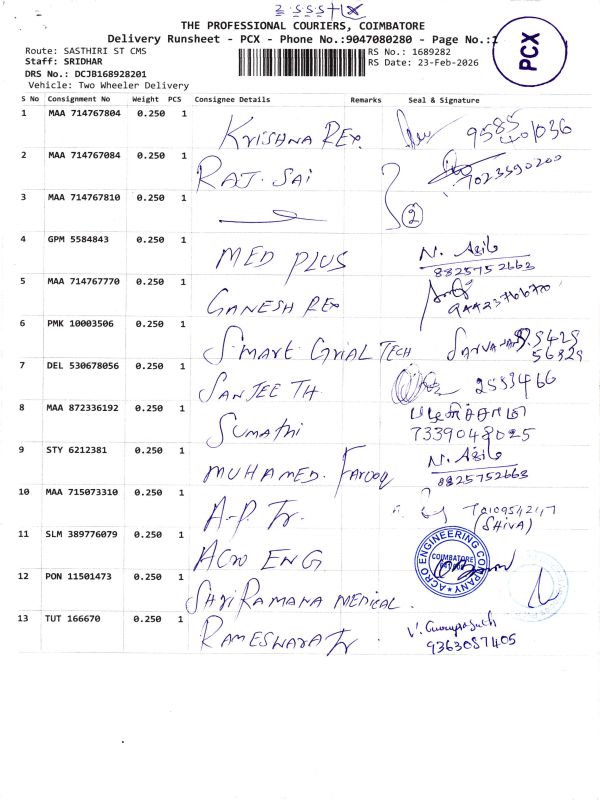 THE PROFESSIONAL COURIERS, COIMBATORE
Delivery Runsheet - PCX - Phone No.:9047080280 - Page No.:1
PCX
Route: SASTHIRI ST CMS
RS No.: 1689282
Staff: SRIDHAR
RS Date: 23-Feb-2026
DRS No.: DCJB168928201
Vehicle: Two Wheeler Delivery
S No Consignment No Weight PCS Consignee Details Remarks Seal & Signature
1 MAA 714767804 0.250 1 KRISHNA REX.
2 MAA 714767084 0.250 1 RAJ. SAI 7023590200
3 MAA 714767810 0.250 1 2
4 GPM 5584843 0.250 1 MED PLUS N. Asile
8825752663
5 MAA 714767770 0.250 1 GANESH REX
6 PMK 10003506 0.250 1 SMART GRIAL TECH
7 DEL 530678056 0.250 1 SANJEE TH 2553466
8 MAA 872336192 0.250 1 SUMATHI
7339048025
9 STY 6212381 0.250 1 MUHAMED. FAROOQ N. Asile
8825752663
10 MAA 715073310 0.250 1 A-P. Tr.
(SHIVA)
11 SLM 389776079 0.250 1 ACRO ENG ACRO ENGINEERING COMPANY
COIMBATORE
12 PON 11501473 0.250 1 SHRI RAMANA MEDICAL.
13 TUT 166670 0.250 1 RAMESWARA Tr V. Guruprasath
9363087405